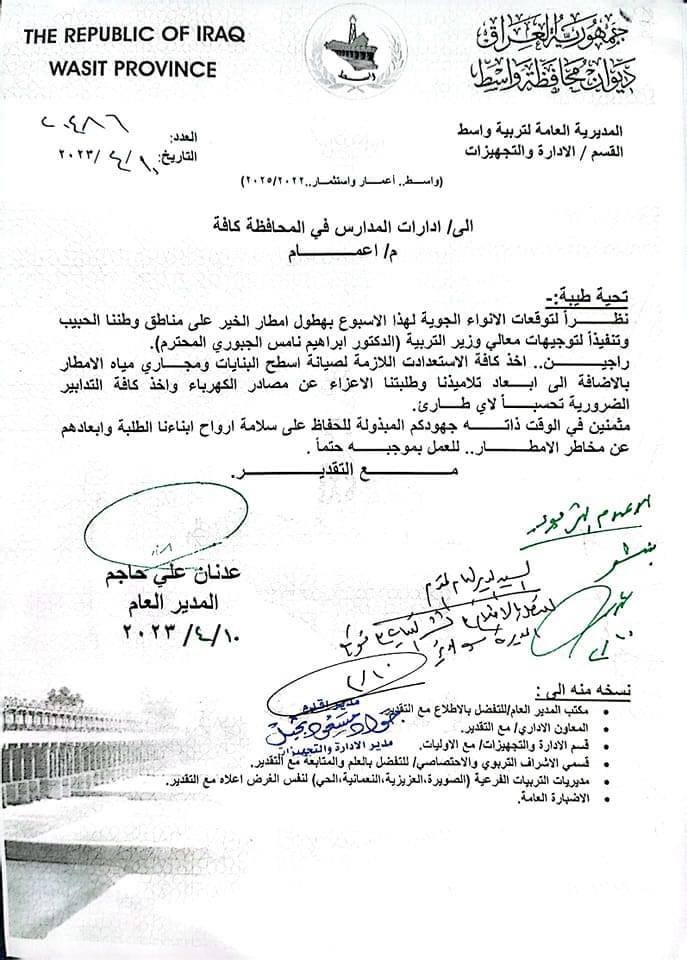 THE REPUBLIC OF IRAQ
WASIT PROVINCE
جمهورية العراق
ديوان محافظة واسط
واسط
المديرية العامة لتربية واسط
القسم / الادارة والتجهيزات
العدد: ٢٠٤٨٦
التاريخ: ٢٠٢٣/٤/١٠
(واسط.. أعمار واستثمار..٢٠٢٢/٢٠٢٥)
الى/ ادارات المدارس في المحافظة كافة
م/ اعمـــــــام
تحية طيبة:-
نظـــرأ لتوقعات الانواء الجوية لهذا الاسبوع بهطول امطار الخير على مناطق وطننا الحبيب
وتنفيذاً لتوجيهات معالي وزير التربية (الدكتور ابراهيم نامس الجبوري المحترم).
راجيـــن.. اخذ كافة الاستعدادت اللازمة لصيانة اسطح البنايات ومجاري مياه الامطار
بالاضافة الى ابعاد تلاميذنا وطلبتنا الاعزاء عن مصادر الكهرباء واخذ كافة التدابير
الضرورية تحسبـــأ لاي طـــارئ.
مثمنين في الوقت ذاتـــه جهودكم المبذولة للحفاظ على سلامة ارواح ابناءنا الطلبة وابعادهم
عن مخاطر الامطـــار.. للعمل بموجبـــه حتماً .
مـــع التقديـــر.
عدنان علي حاجم
المدير العام
٢٠٢٣/٤/١٠
الاعلام التربوي
السيد المدير العام المحترم
٤/١٠
مدير اقدم
جواد مسعود
مدير الادارة والتجهيزات
نسخه منه الى :
• مكتب المدير العام/للتفضل بالاطلاع مع التقدير.
• المعاون الاداري/ مع التقدير.
• قسم الادارة والتجهيزات/ مع الاوليات.
• قسمي الاشراف التربوي والاختصاصي/ للتفضل بالعلم والمتابعة مع التقدير.
• مديريات التربيات الفرعية (الصويرة،العزيزية،النعمانية،الحي) لنفس الغرض اعلاه مع التقدير.
• الاضبارة العامة.